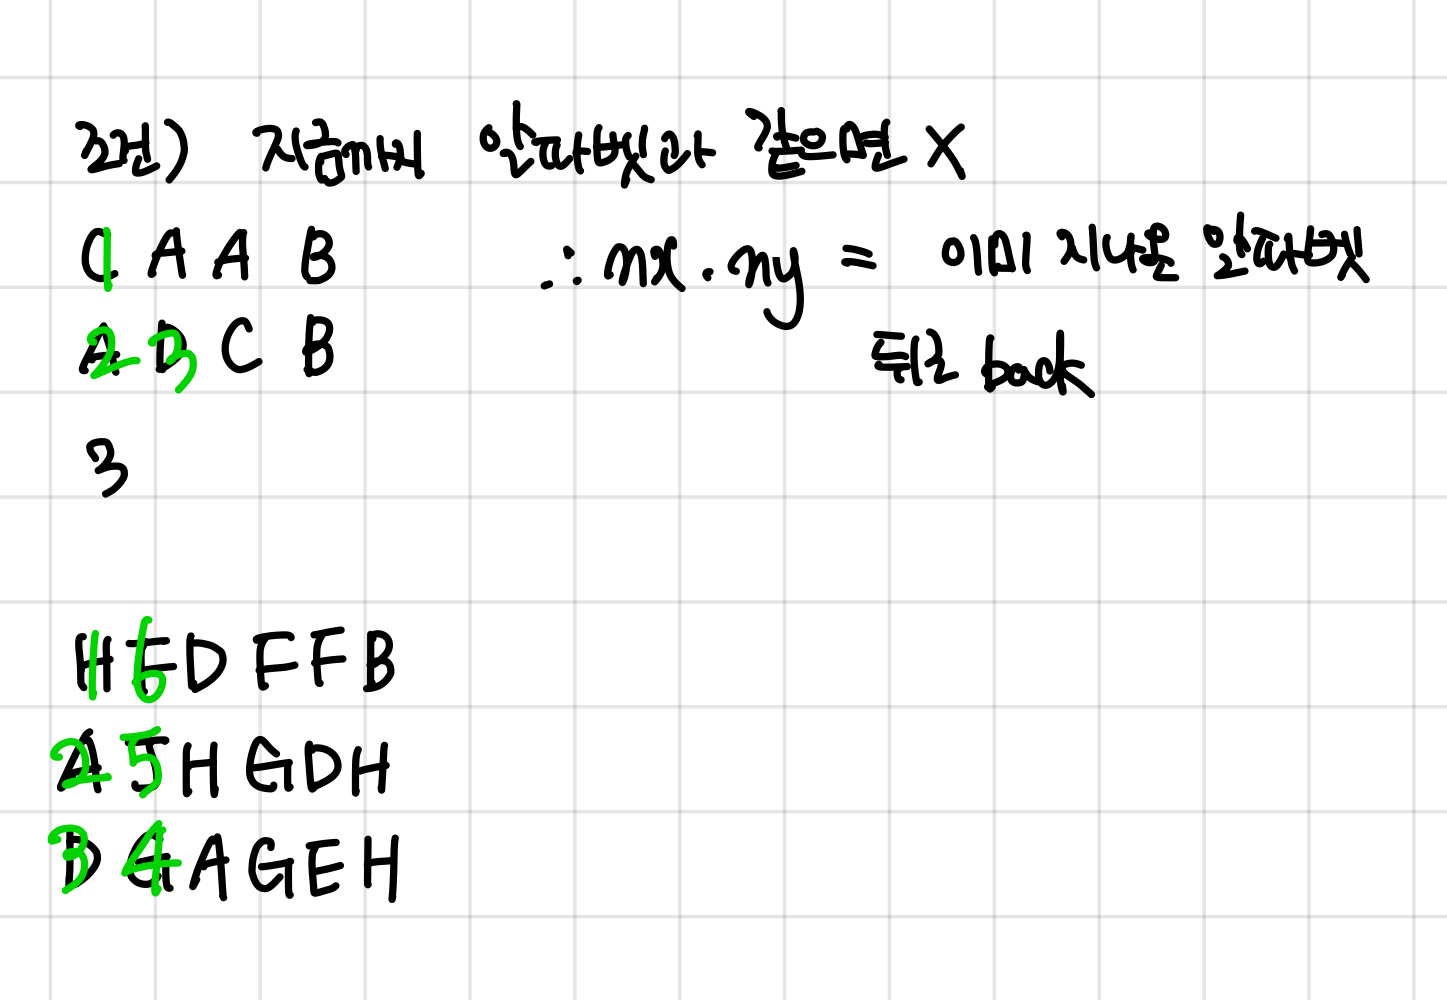 조건) 지금까지 알파벳과 같으면 X
C A A B
∴ nx, ny = 이미 지나온 알파벳
A D C B
뒤로 back
1
2 3
3
H F D F F B
A J H G D H
D G A G E H
1 6
2 5
3 4